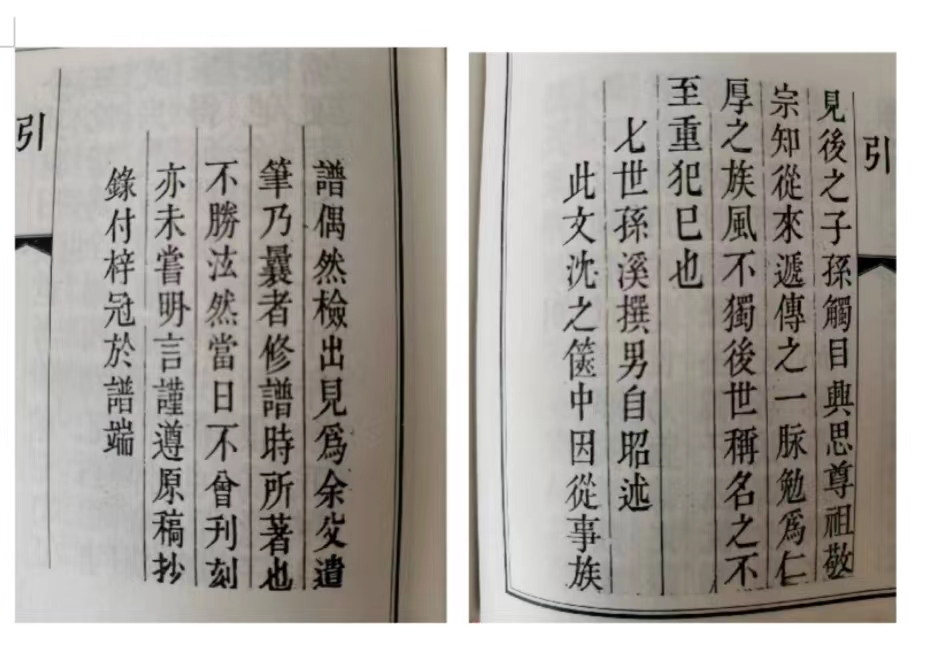 引
見後之子孫觸目興思尊祖敬
宗知從來遞傳之一脉勉爲仁
厚之族風不獨後世稱名之不
至重犯巳也
七世孫溪撰男自昭述
此文沈之篋中因從事族
譜偶然檢出見爲余父遺
筆乃曩者修譜時所著也
不勝泫然當日不曾刊刻
亦未嘗明言謹遵原稿抄
錄付梓冠於譜端
引